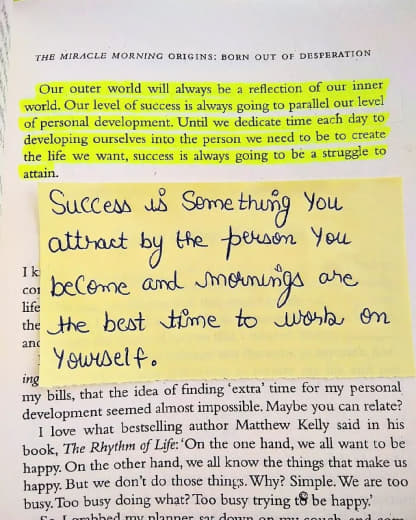 THE MIRACLE MORNING ORIGINS: BORN OUT OF DESPERATION
Our outer world will always be a reflection of our inner
world. Our level of success is always going to parallel our level
of personal development. Until we dedicate time each day to
developing ourselves into the person we need to be to create
the life we want, success is always going to be a struggle to
attain.
Success is Something You
attract by the person You
become and mornings are
the best time to work on
Yourself.
I k
co
life
the
and
ing
my bills, that the idea of finding ‘extra’ time for my personal
development seemed almost impossible. Maybe you can relate?
I love what bestselling author Matthew Kelly said in his
book, The Rhythm of Life: ‘On the one hand, we all want to be
happy. On the other hand, we all know the things that make us
happy. But we don’t do those things. Why? Simple. We are too
busy. Too busy doing what? Too busy trying to be happy.’
So I grabbed my planner, sat down on my couch and